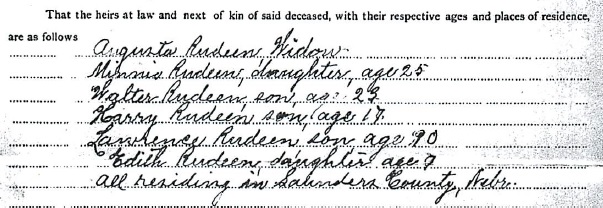 That the heirs at law and next of kin of said deceased, with their respective ages and places of residence,
are as follows
Augusta Rudeen, Widow
Minnie Rudeen, daughter, age 25
Walter Rudeen, son, age 23
Harry Rudeen, son, age 17
Lawrence Rudeen, son, age
Edith Rudeen, daughter age 7
all residing in Saunders County, Nebr.